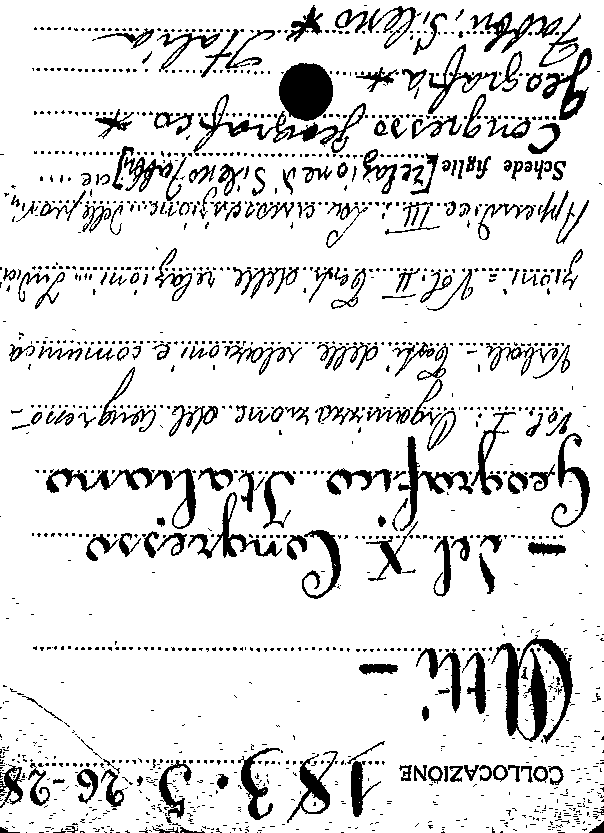 COLLOCAZIONE 183.5.26-28
Atti -
- del X Congresso
Geografico Italiano
Vol. I: Organizzazione del Congresso -
Verbali - Testi delle relazioni e comunica
zioni = Vol. II Testi delle relazioni ... Indici
Appendice III: La circoscrizione delle
Schede figlie [Relazione di Sileno Fabbri] ...
Congresso geografico *
Geografia * Italia
Fabbri, Sileno *